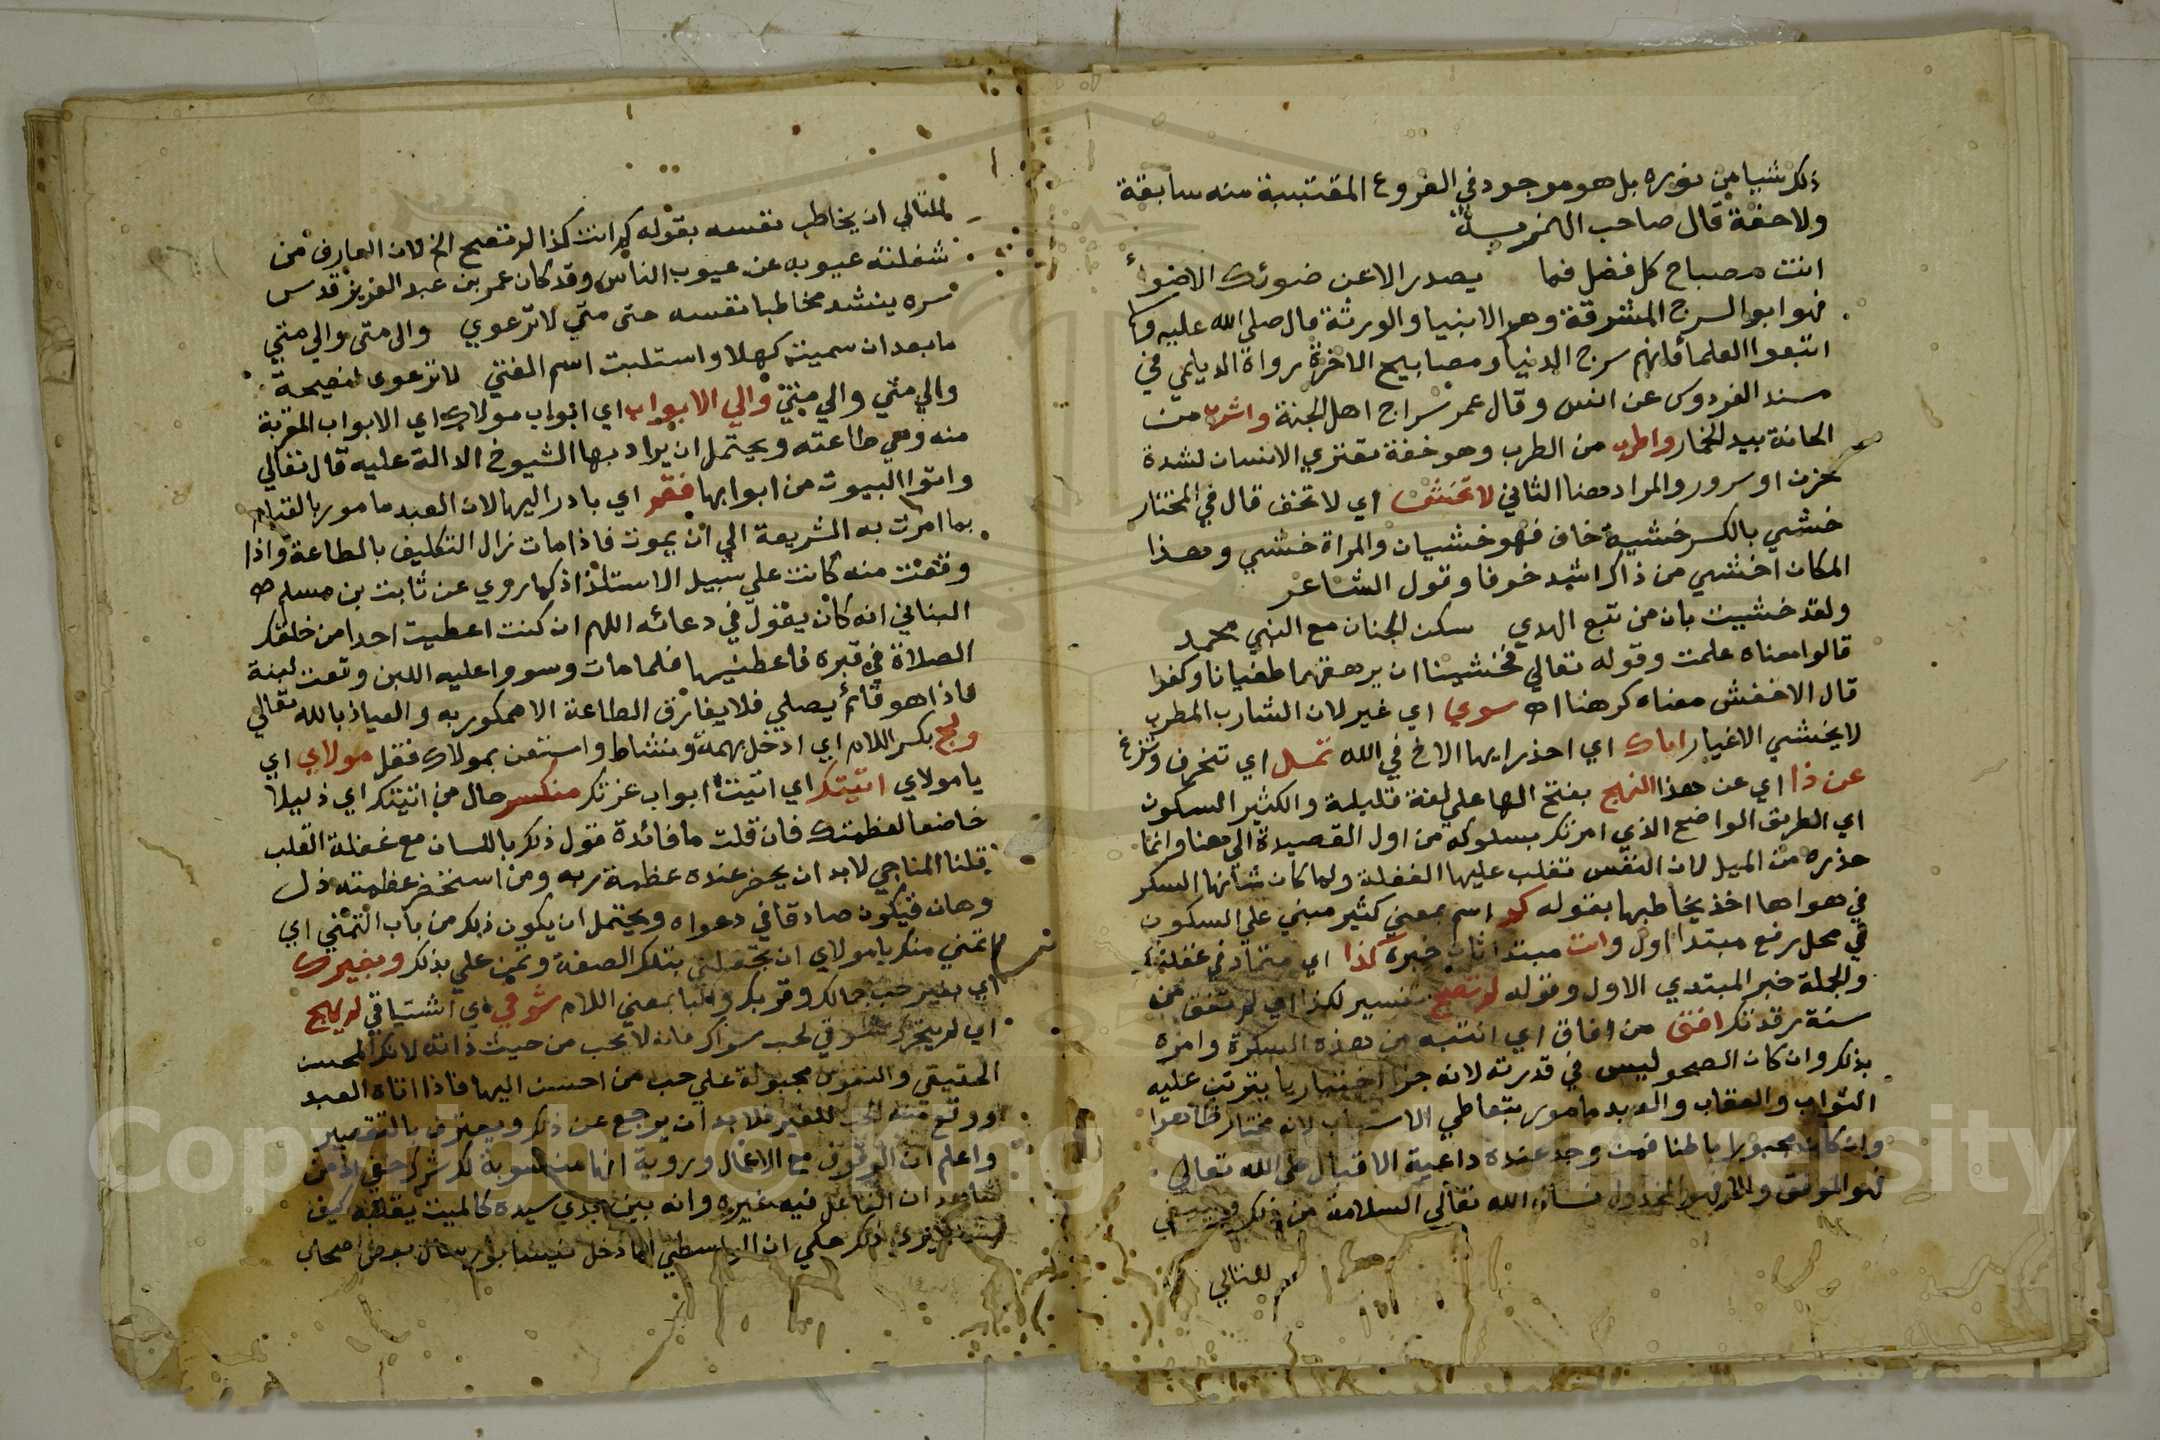 ذلك شيا من نوره بل هو موجود في الفروع المقتبسة منه سابقة
ولاحقة قال صاحب الهمزية
انت مصباح كل فضل فما يصدر الا عن ضوئك الاضواء
فهو ابو السرج المشرقة وهم الانبيا والورثة قال صلى الله عليه وسلم
اتبعوا العلما فانهم سرج الدنيا ومصابيح الاخرة رواة الديلمي في
مسند الفردوس عن انس وقال عمر سراج اهل الجنة واشرب من
الحانة بيد الخمار واطرب من الطرب وهو خفة تعتري الانسان لشدة
حزن او سرور والمراد هنا الثاني لا تخشى اي لا تخف قال في المختار
خشي بالكسر خشية خاف فهو خشيان والمراة خشي وهذا
المكان اخشي من ذاك اشد خوفا وقول الشاعر
ولقد خشيت بان من تبع الهدي سكن الجنان مع النبي محمد
قالوا معناه علمت وقوله تعالي فخشينا ان يرهقهما طغيانا وكفرا
قال الاخفش معناه كرهنا اه سوي اي غير لان الشارب المطرب
لا يخشي الاغيار اياك اي احذر ايها الاخ في الله تمل اي تنحرف وتزغ
عن ذا اي عن هذا النهج بفتح الها علي لغة قليلة والكثير السكون
اي الطريق الواضح الذي امرتك بسلوكه من اول القصيدة الي هنا وانما
حذره من الميل لان النفس تغلب عليها الغفلة ولما كان شانها السكر
في هواها اخذ يخاطبها بقوله كم اسم بمعني كثير مبني علي السكون
في محل رفع مبتدا اول وانت مبتدا ثان خبره كذا اي متماد في غفلة
والجملة خبر المبتدي الاول وقوله لم تصح تفسير لكذا اي لم تفق من
سنة رقدتك افق من افاق اي انتبه من هذه السكرة وامره
بذلك وان كان الصحو ليس في قدرته لانه جزا اختياريا يترتب عليه
الثواب والعقاب والعبد مامور بتعاطي الاسباب لانه مختار ظاهرا
وان كان مجبورا باطنا فمن وجد عنده داعية الاقبال علي الله تعالي
فهو الموفق والا فهو المخذول نسال الله تعالي السلامة من ذلك وينبغي
للتالي
للتالي ان يخاطب نفسه بقوله كم انت كذا لم تصح الخ لان العارف من
شغلته عيوبه عن عيوب الناس وقد كان عمر بن عبد العزيز قدس
سره ينشد مخاطبا نفسه حتى متي لا ترعوي والى متى والي متي
ما بعد ان سميت كهلا واستلبت اسم الفتي لا ترعوي لنصيحة
والي متي والي متي والي الابواب اي ابواب مولاك اي الابواب المقربة
منه وهي طاعته ويحتمل ان يراد بها الشيوخ الدالة عليه قال تعالي
واتوا البيوت من ابوابها فقم اي بادر اليها لان العبد مامور بالقيام
بما امرت به الشريعة الي ان يموت فاذا مات زال التكليف بالطاعة واذا
وقعت منه كانت علي سبيل الاستلذاذ كما روي عن ثابت بن مسلم
البناني انه كان يقول في دعائه اللهم ان كنت اعطيت احدا من خلقك
الصلاة في قبره فاعطنيها فلما مات وسووا عليه اللبن وقعت لبنة
فاذا هو قائم يصلي فلا يفارق الطاعة الا ممكور به والعياذ بالله تعالي
ولج بكسر اللام اي ادخل بهمة ونشاط واستعن بمولاك فقل مولاي اي
يا مولاي اتيتك اي اتيت ابواب عزتك منكسر حال من اتيتك اي ذليلا
خاضعا لعظمتك فان قلت ما فائدة قول ذلك باللسان مع غفلة القلب
قلنا المناجي لابد ان يحضر عنده عظمة ربه ومن استحضر عظمته ذل
وهان فيكون صادقا في دعواه ويحتمل ان يكون ذلك من باب التمني اي
اتمني منك يا مولاي ان تجعلني بتلك الصفة وتمن علي بذلك وبغيرك
اي بغير حب جمالك وقربك والبا بمعني اللام شوقي اي اشتياقي لم يهج
اي لم يتحرك شوقي لحب سواك فانه لا يحب من حيث ذاته لانك المحسن
الحقيقي والنفوس مجبولة علي حب من احسن اليها فاذا اتاه العبد
ووقع منه الحب للغير فلابد ان يرجع عن ذلك ويعترف بالتقصير
واعلم ان الوقوف مع الاعمال ورؤية انها منسوبة لك شرك خفي اذ من
شاهد ان الفاعل فيه غيره وانه بين يدي سيده كالميت يقلبه كيف
ذلك حكي ان الواسطي لما دخل نيسابور سال بعض اصحاب